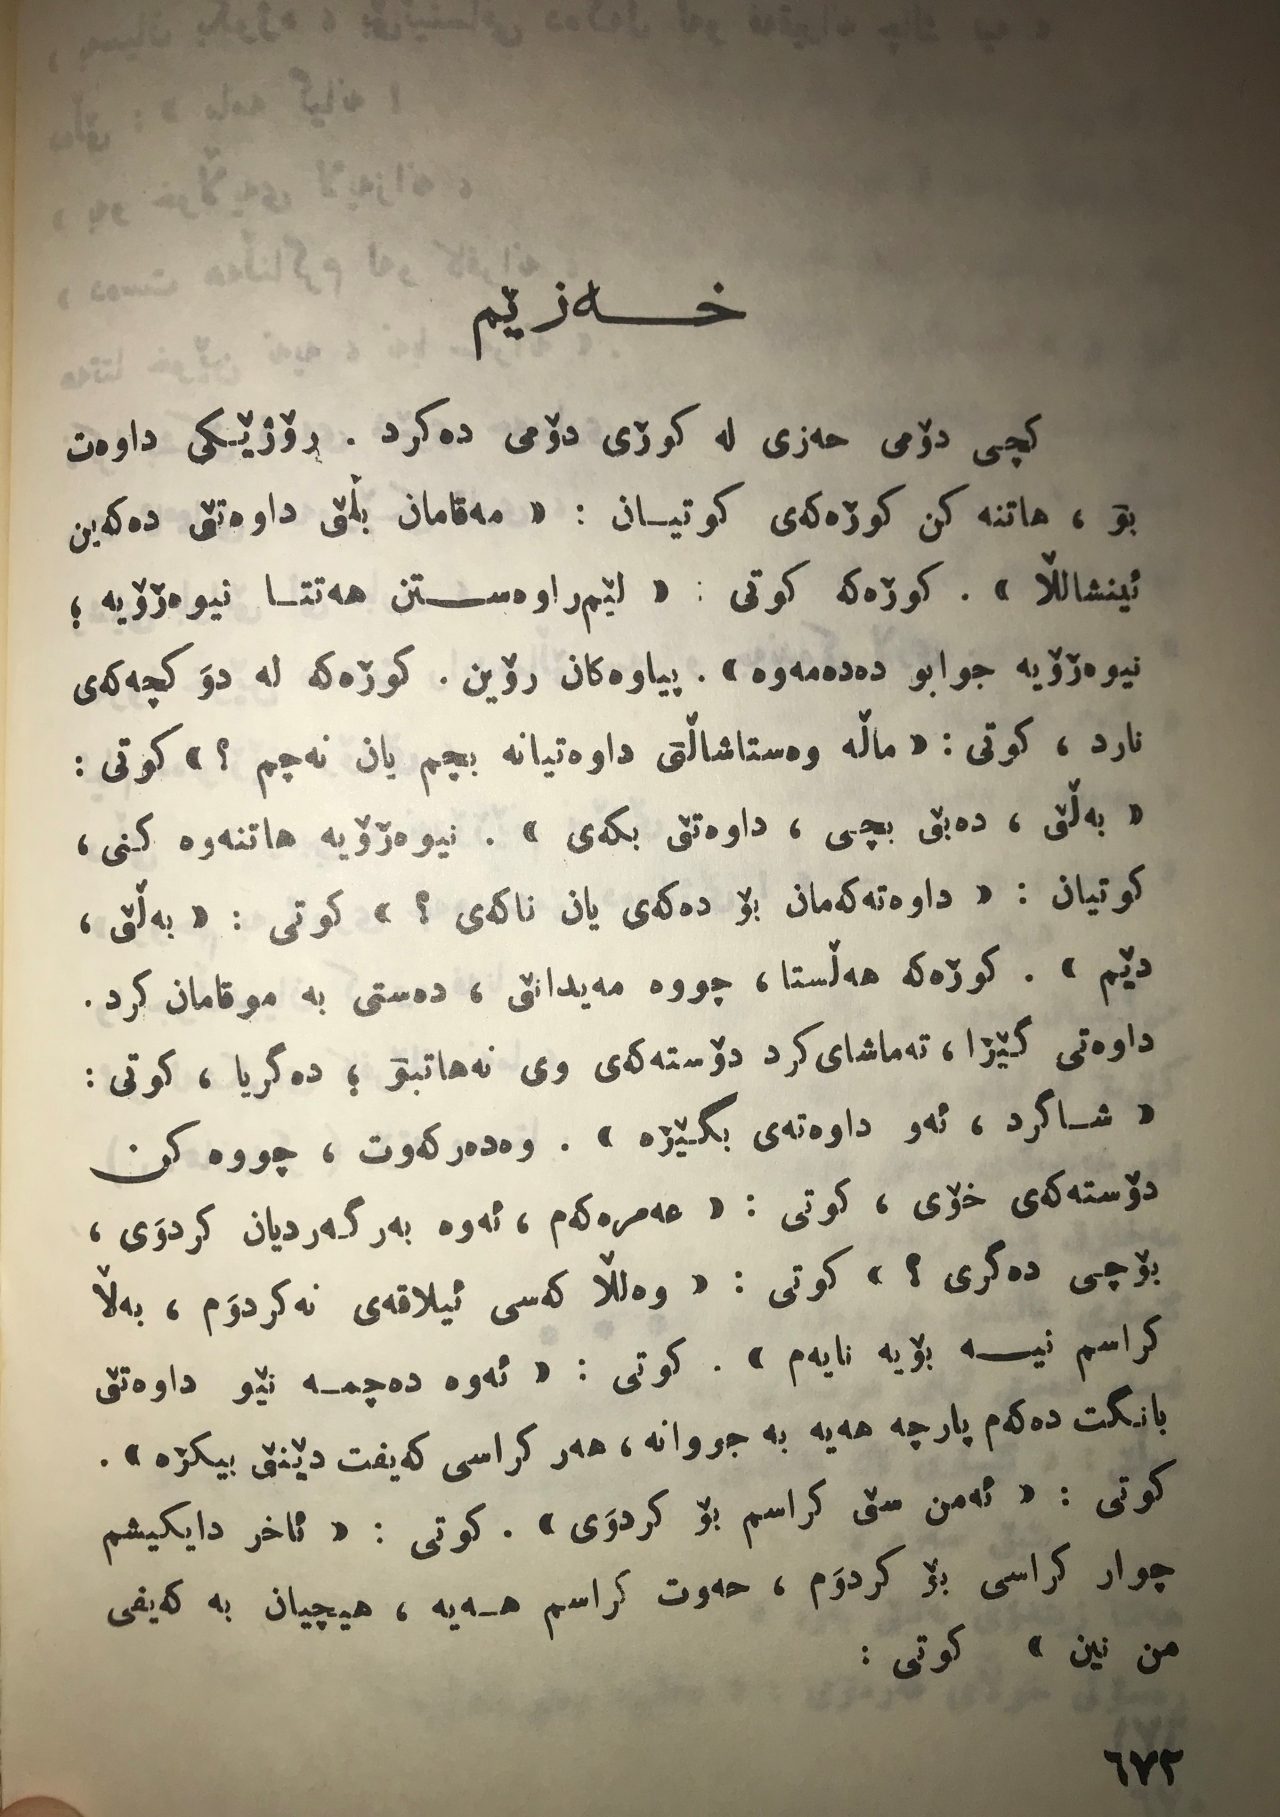 خەزێم
کچی دۆمی حەزی لە کوڕی دۆمی دەکرد . رۆژێکی داوەت
بۊ ، هاتنە کن کوڕەکەی کوتیان : « مەقامان بڵێ داوەتێ دەکەین
ئینشاڵڵا » . کوڕەکە کوتی : « لێم‌راوەستن هەتتا نیوەڕۆیە ؛
نیوەڕۆیە جوابو دەدەمەوە» . پیاوەکان رۆین . کوڕەکە لە دۊ کچەکەی
نارد ، کوتی : « ماڵە وەستاشاڵێ داوەتیانە بچم یان نەچم ؟ » کوتی :
« بەڵێ ، دەبێ بچی ، داوەتێ بکەی » . نیوەڕۆیە هاتنەوە کنی ،
کوتیان : « داوەتەکەمان بۆ دەکەی یان ناکەی ؟ » کوتی : « بەڵێ ،
دێم » . کوڕەکە هەڵستا ، چووە مەیدانێ ، دەستی بە موقامان کرد .
داوەتی گێڕا ، تەماشای‌کرد دۆستەکەی وی نەهاتبۊ ؛ دەگریا ، کوتی :
« شاگرد ، ئەو داوەتەی بگێڕە » . وەدەرکەوت ، چووە کن
دۆستەکەی خۆی ، کوتی : « عەمرەکەم ، ئەوە بەرگەردیان کردوَی ،
بۆچی دەگری ؟ » کوتی : « وەڵڵا کەسی ئیلاقەی نەکردوَم ، بەڵا
کراسم نیە بۆیە نایەم » . کوتی : « ئەوە دەچمە نێو داوەتێ
بانگت دەکەم پارچە هەیە بە جروانە ، هەر کراسی کەیفت دێنێ بیکڕە » .
کوتی : « ئەمن سێ کراسم بۆ کردوَی » . کوتی : « ئاخر دایکیشم
چوار کراسی بۆ کردوَم ، حەوت کراسم هەیە ، هیچیان بە کەیفی
من نین » کوتی :
٦٧٢